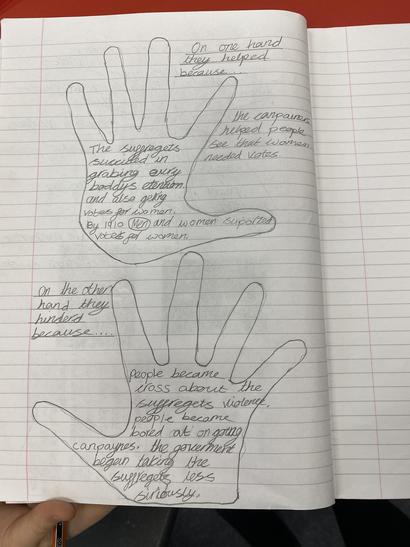 On one hand
they helped
because....
the canpainers
helped people
see that women
needed votes
The suffregets
succided in
grabing evry
baddys etention
and also geting
votes for women.
By 1910 Men and women suported
votes for women.
On the other
hand they
hinderd
because....
people became
cross about the
suffregets violence.
people became
bored at on going
canpaynes. the goverment
began taking the
suffregets less
siriously.